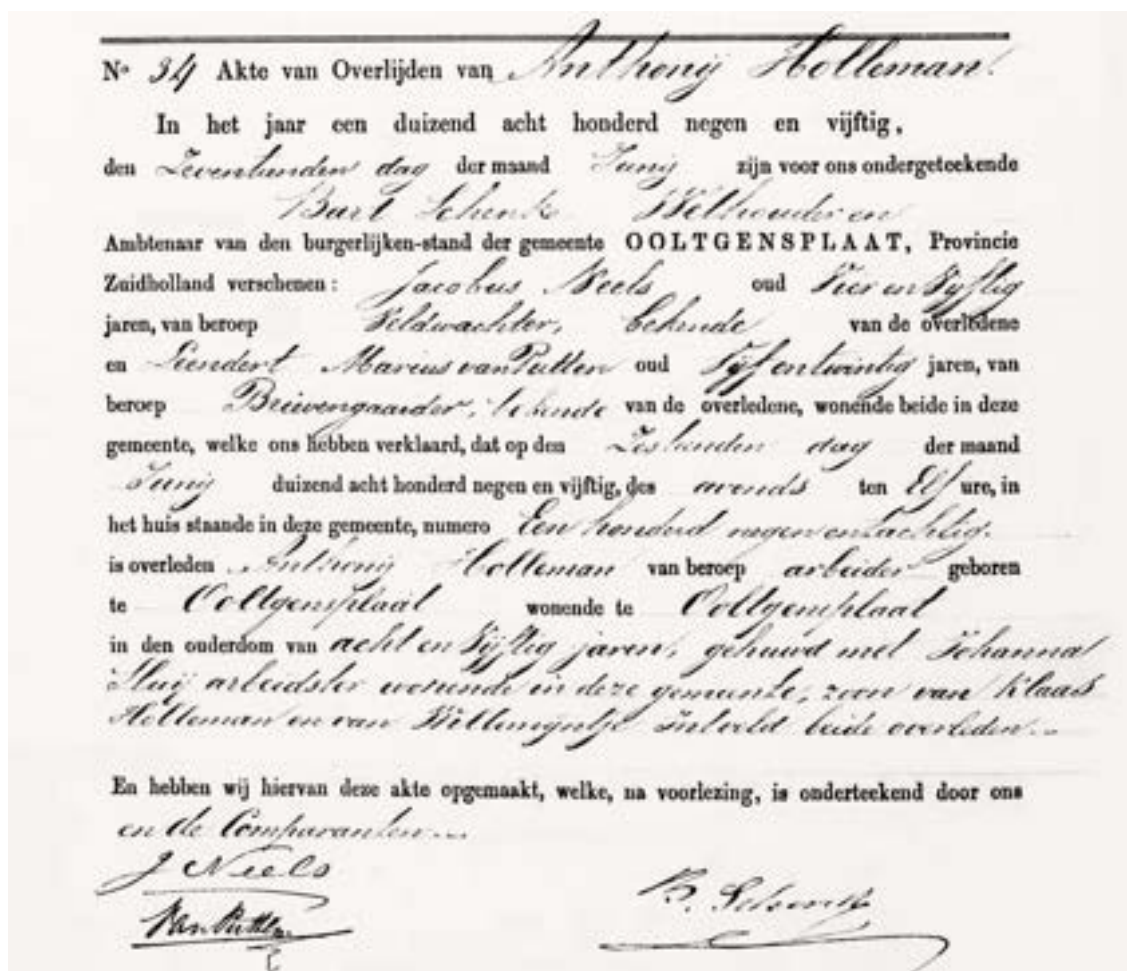 No 34 Akte van Overlijden van Anthonij Holleman.
In het jaar een duizend acht honderd negen en vijftig,
den Zeventienden dag der maand Junij zijn voor ons ondergeteekende
Bart Schenk Wethouder en
Ambtenaar van den burgerlijken-stand der gemeente OOLTGENSPLAAT, Provincie
Zuidholland verschenen: Jacobus Neels oud Vier en Vijftig
jaren, van beroep Veldwachter, bekende van de overledene
en Leendert Marius van Putten oud Vijf en twintig jaren, van
beroep Brievengaarder, bekende van de overledene, wonende beide in deze
gemeente, welke ons hebben verklaard, dat op den Zestienden dag der maand
Junij duizend acht honderd negen en vijftig, des avonds ten Elf ure, in
het huis staande in deze gemeente, numero Een honderd negen en tachtig.
is overleden Anthonij Holleman van beroep arbeider geboren
te Ooltgensplaat wonende te Ooltgensplaat
in den ouderdom van acht en Vijftig jaren, gehuwd met Johanna
Sluij arbeidster wonende in deze gemeente, zoon van Klaas
Holleman en van Willemijntje Intveld beide overleden.
En hebben wij hiervan deze akte opgemaakt, welke, na voorlezing, is onderteekend door ons
en de Comparanten.
J Neels
B. Schenk
Van Putten